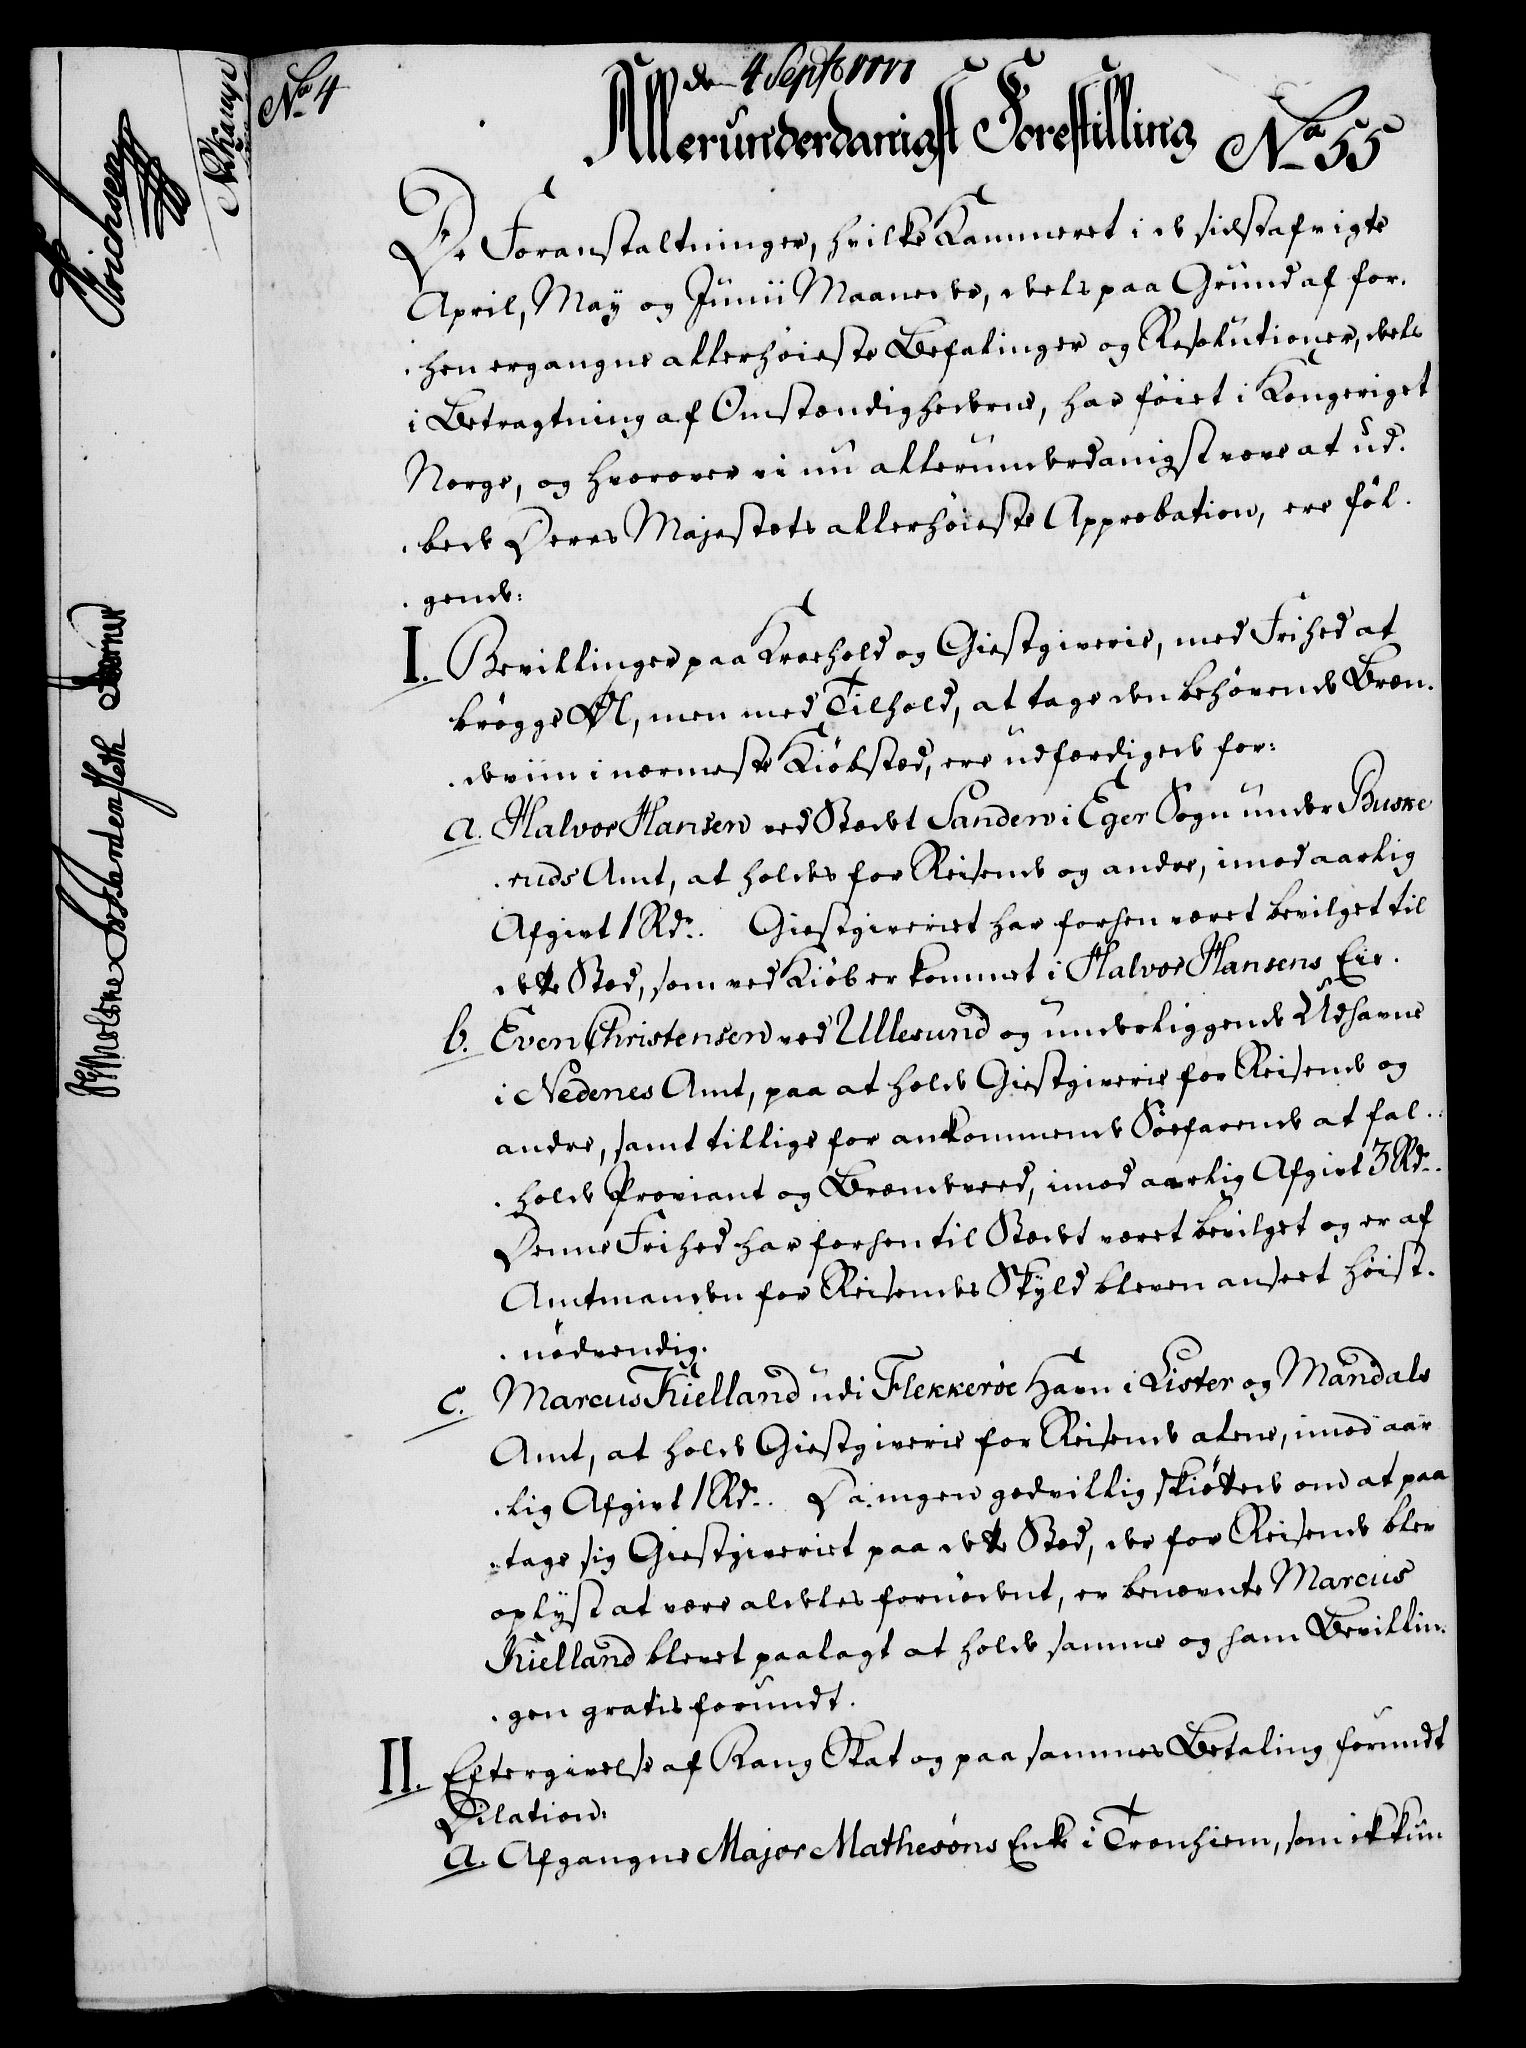 No 4
de 4 Septbr
Allerunderdanigst Forestilling No 55
De Foranstaltninger, hvilke Kammeret i de sidstafvigte
April, May og Junii Maaneder, deels paa Grund af for-
-hen ergangne allerhöieste Befalinger og Resolutioner, deels
i Betragtning af Omstændighederne, har föiet i Kongeriget
Norge, og hvorover vi nu allerunderdanigst vove at ud-
-bede Deres Majestets allerhöieste Approbation, ere föl-
-gende:
I. Bevillinger paa Kroehold og Giestgiverie, med Frihed at
brögge Öl, men med Tilhold, at tage den behövende Bræn-
-deviin i nærmeste Kiöbsted, ere udfærdigede for:
a. Halvor Hansen ved Stædet Sanden i Eger Sogn under Buske
-ruds Amt, at holdes for Reisende og andre, imod aarlig
Afgivt 1 Rdr. Giestgiveriet har forhen været bevilget til
dette Sted, som ved Kiöb er kommet i Halvor Hansens Eie.
b. Even Christensen ved Ullesund og underliggende Udhavne
i Nedenes Amt, paa at holde Giestgiverie for Reisende og
andre, samt tillige for ankommende Söefarende at fal-
-holde Proviant og Brændeveed, imod aarlig Afgivt 3 Rdr.
Denne Frihed har forhen til Stædet været bevilget og er af
Amtmanden for Reisendes Skyld bleven anseet höist-
-nödvendig.
c. Marcus Kielland udi Flekkeröe Havn i Lister og Mandals
Amt, at holde Giestgiverie for Reisende alene, imod aar
-lig Afgivt 1 Rdr. Da ingen godvillig skiöttede om at paa
-tage sig Giestgiveriet paa dette Sted, der for Reisende blev
oplyst at være aldeles fornödent, er benævnte Marcus
Kielland blevet paalagt at holde samme og ham Bevillin-
-gen gratis forundt.
II. Eftergivelse af Rang Skat og paa sammes Betaling forundt
Dilation:
a. Afgangne Major Mathesons Enke i Tronhiem, som ikkun